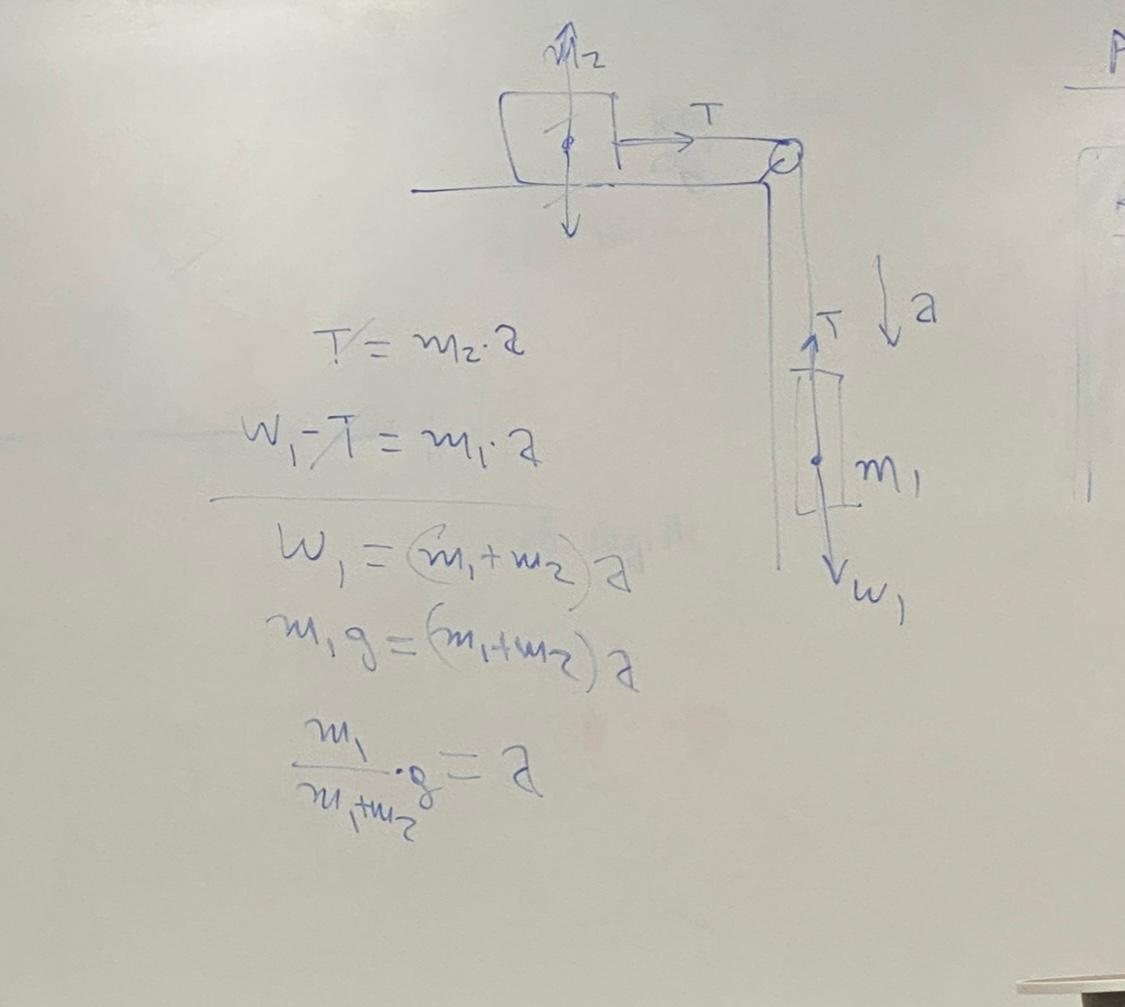 m₂
T
T
a
m₁
W₁
T = m₂·a
W₁-T = m₁·a
W₁ = (m₁+m₂)a
m₁g = (m₁+m₂)a
m₁/(m₁+m₂)·g = a